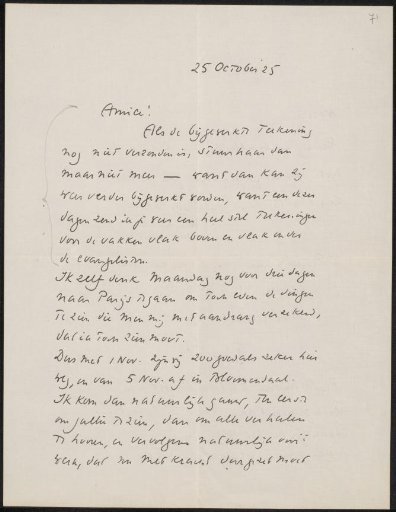 71
25 October 25
Amice!
Als de bijgewerkte teekening
nog niet verzonden is, stuur haar dan
maar niet meer — want dan kan zij
weer verder bijgewerkt worden, want een dezer
dagen zend ik je weer een heel stel teekeningen
voor de vakken vlak boven en vlak onder
de evangelisten.
Ik zelf denk Maandag nog voor drie dagen
naar Parijs te gaan om toch even de dingen
te zien die men mij met aandrang verzekerd,
dat ik toch zien moet.
Dus met 1 Nov. zijn wij zoo goed als zeker hier
weg, en van 5 Nov. af in Bloemendaal.
Ik kom dan natuurlijk gauw, ten eerste
om jullie te zien, dan om alle verhalen
te hooren, en vervolgens natuurlijk om 't
werk, dat nu met kracht doorgezet moet